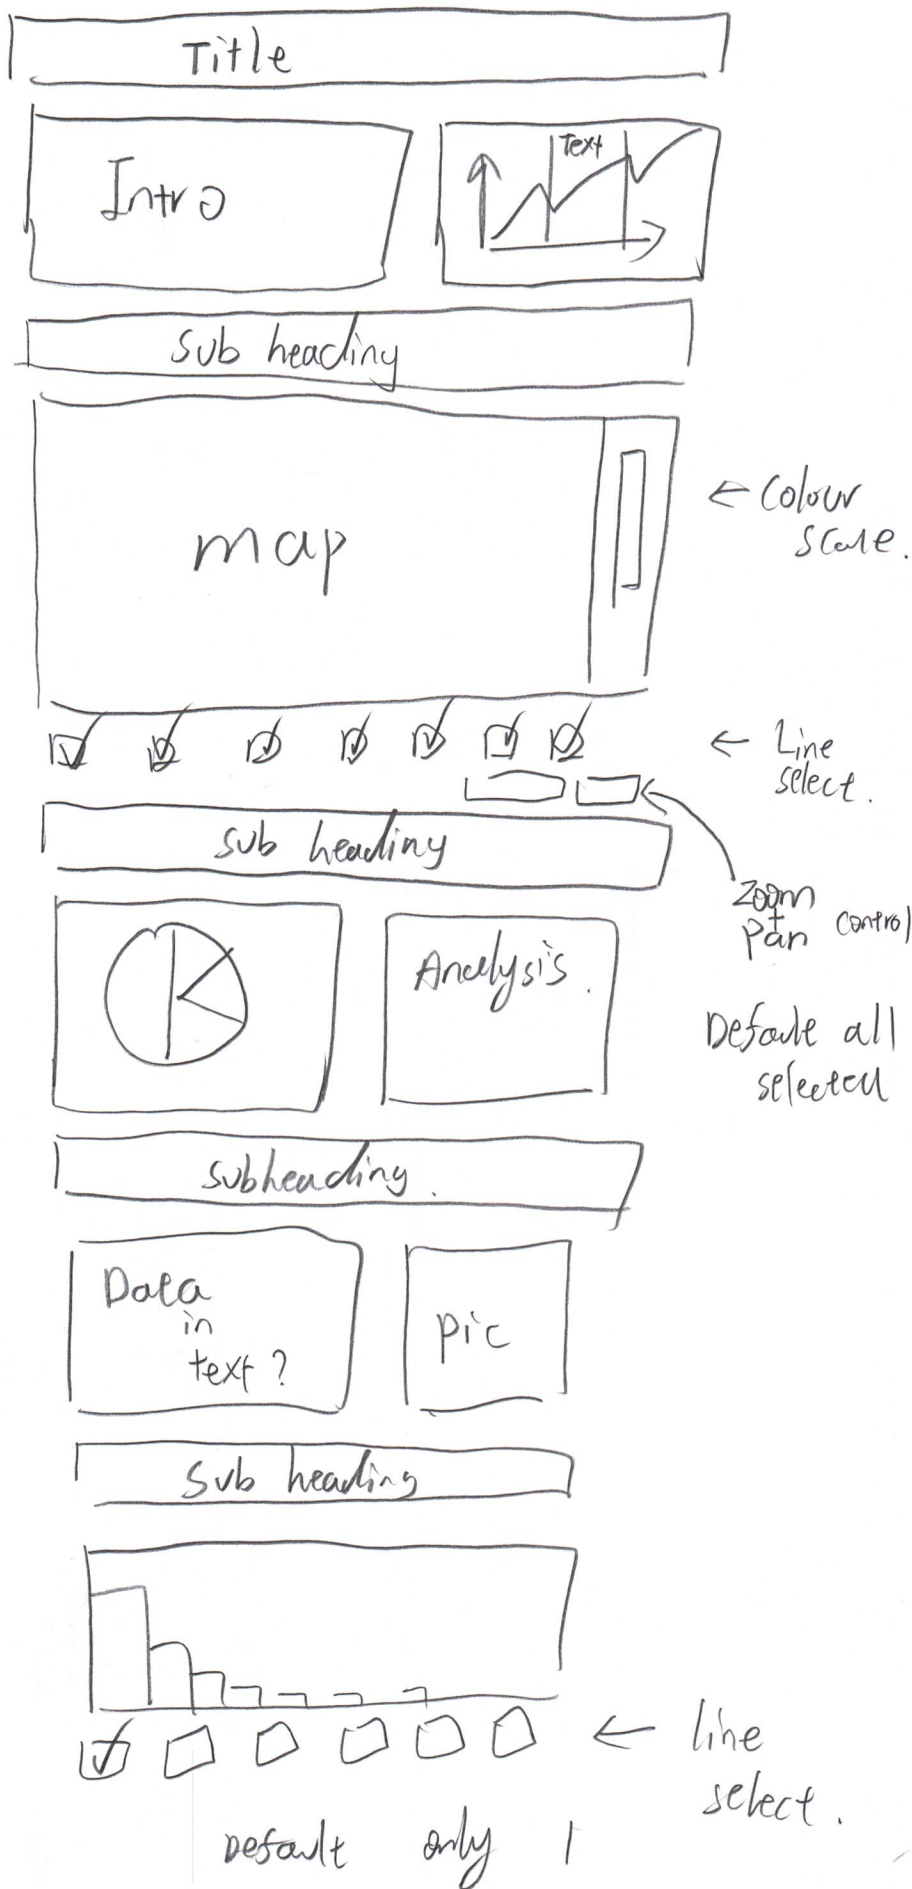 Title
Intro
Text
Sub heading
map
← Colour
scale.
← Line
select.
Sub heading
Zoom
+
Pan control
Analysis.
Default all
selected
Subheading.
Data
in
text?
pic
Sub heading
← line
select.
Default only 1